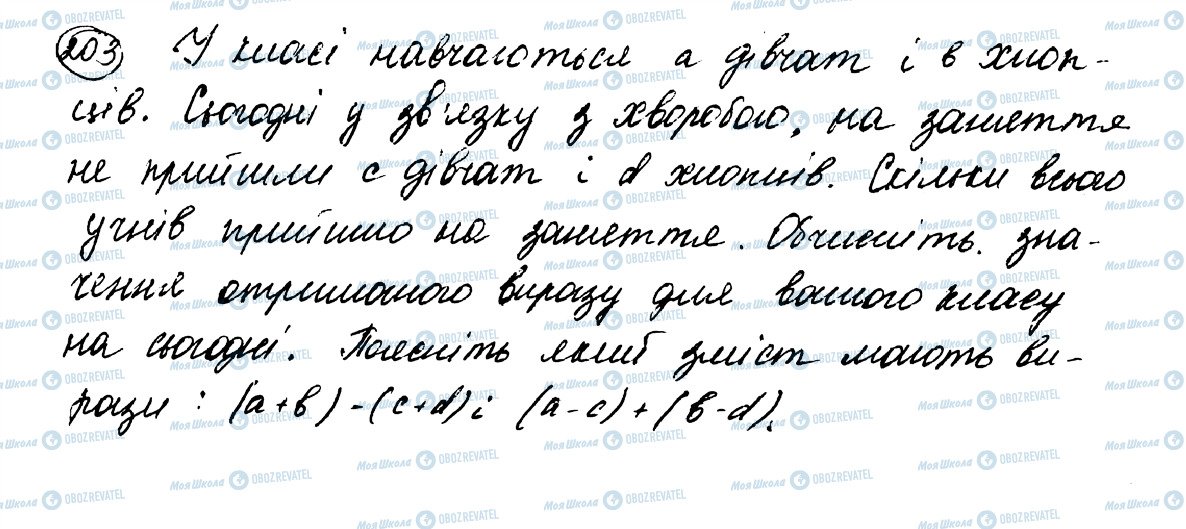 203 У класі навчаються a дівчат і в хлоп-
ців. Сьогодні у зв'язку з хворобою, на заняття
не прийшли c дівчат і d хлопців. Скільки всього
учнів прийшло на заняття. Обчисліть зна-
чення отриманого виразу для вашого класу
на сьогодні. Поясніть який зміст мають ви-
рази : (a+в)-(c+d) і (a-c)+(в-d).